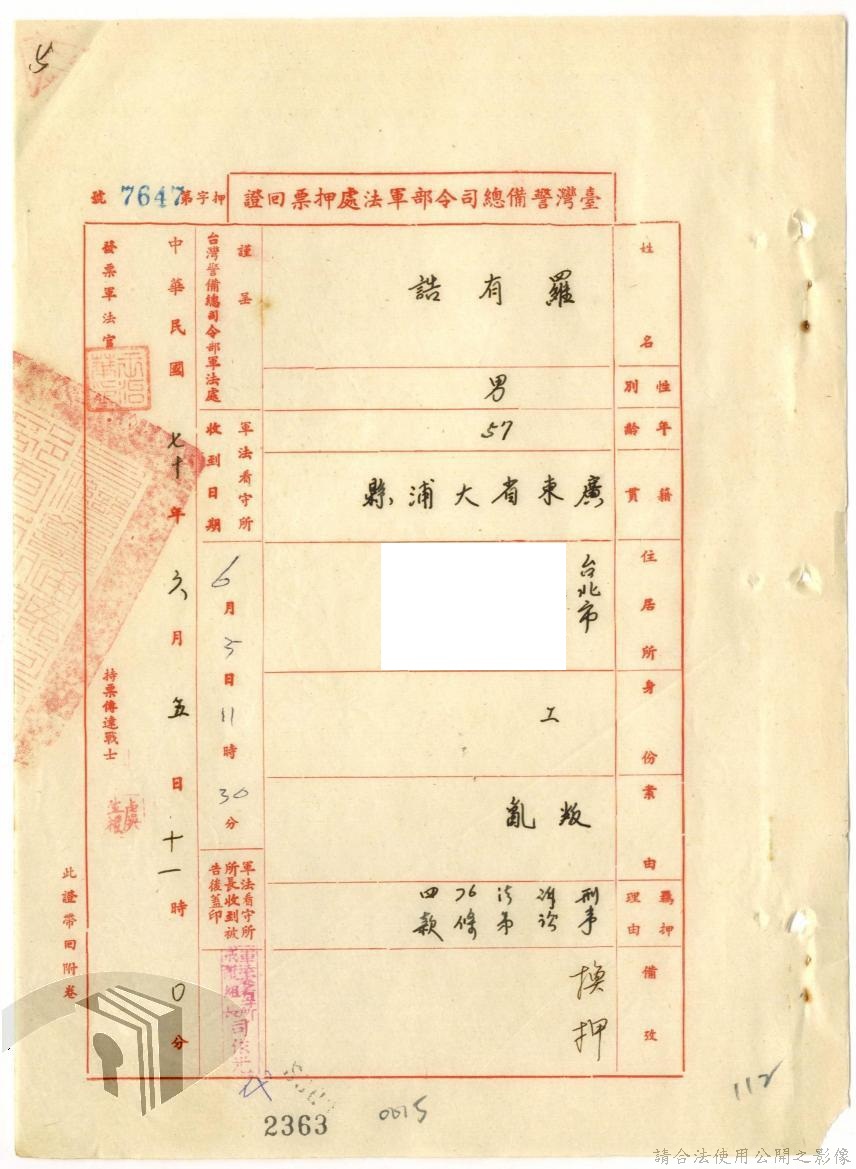 臺灣警備總司令部軍法處押票回證
押字第7647號
姓名
羅有誥
性別
男
年齡
57
籍貫
廣東省大浦縣
住居所
台北市
身份
工
案由
叛亂
羈押理由
刑事
訴訟
法第
76條
四款
備攷
換押
謹呈
台灣警備總司令部軍法處
軍法看守所
收到日期
6月5日11時30分
軍法看守所
所長收到被
告後蓋印
中華民國七十年六月五日十一時0分
發票軍法官
持票傳達戰士
此證帶回附卷
2363
0015
112
請合法使用公開之影像